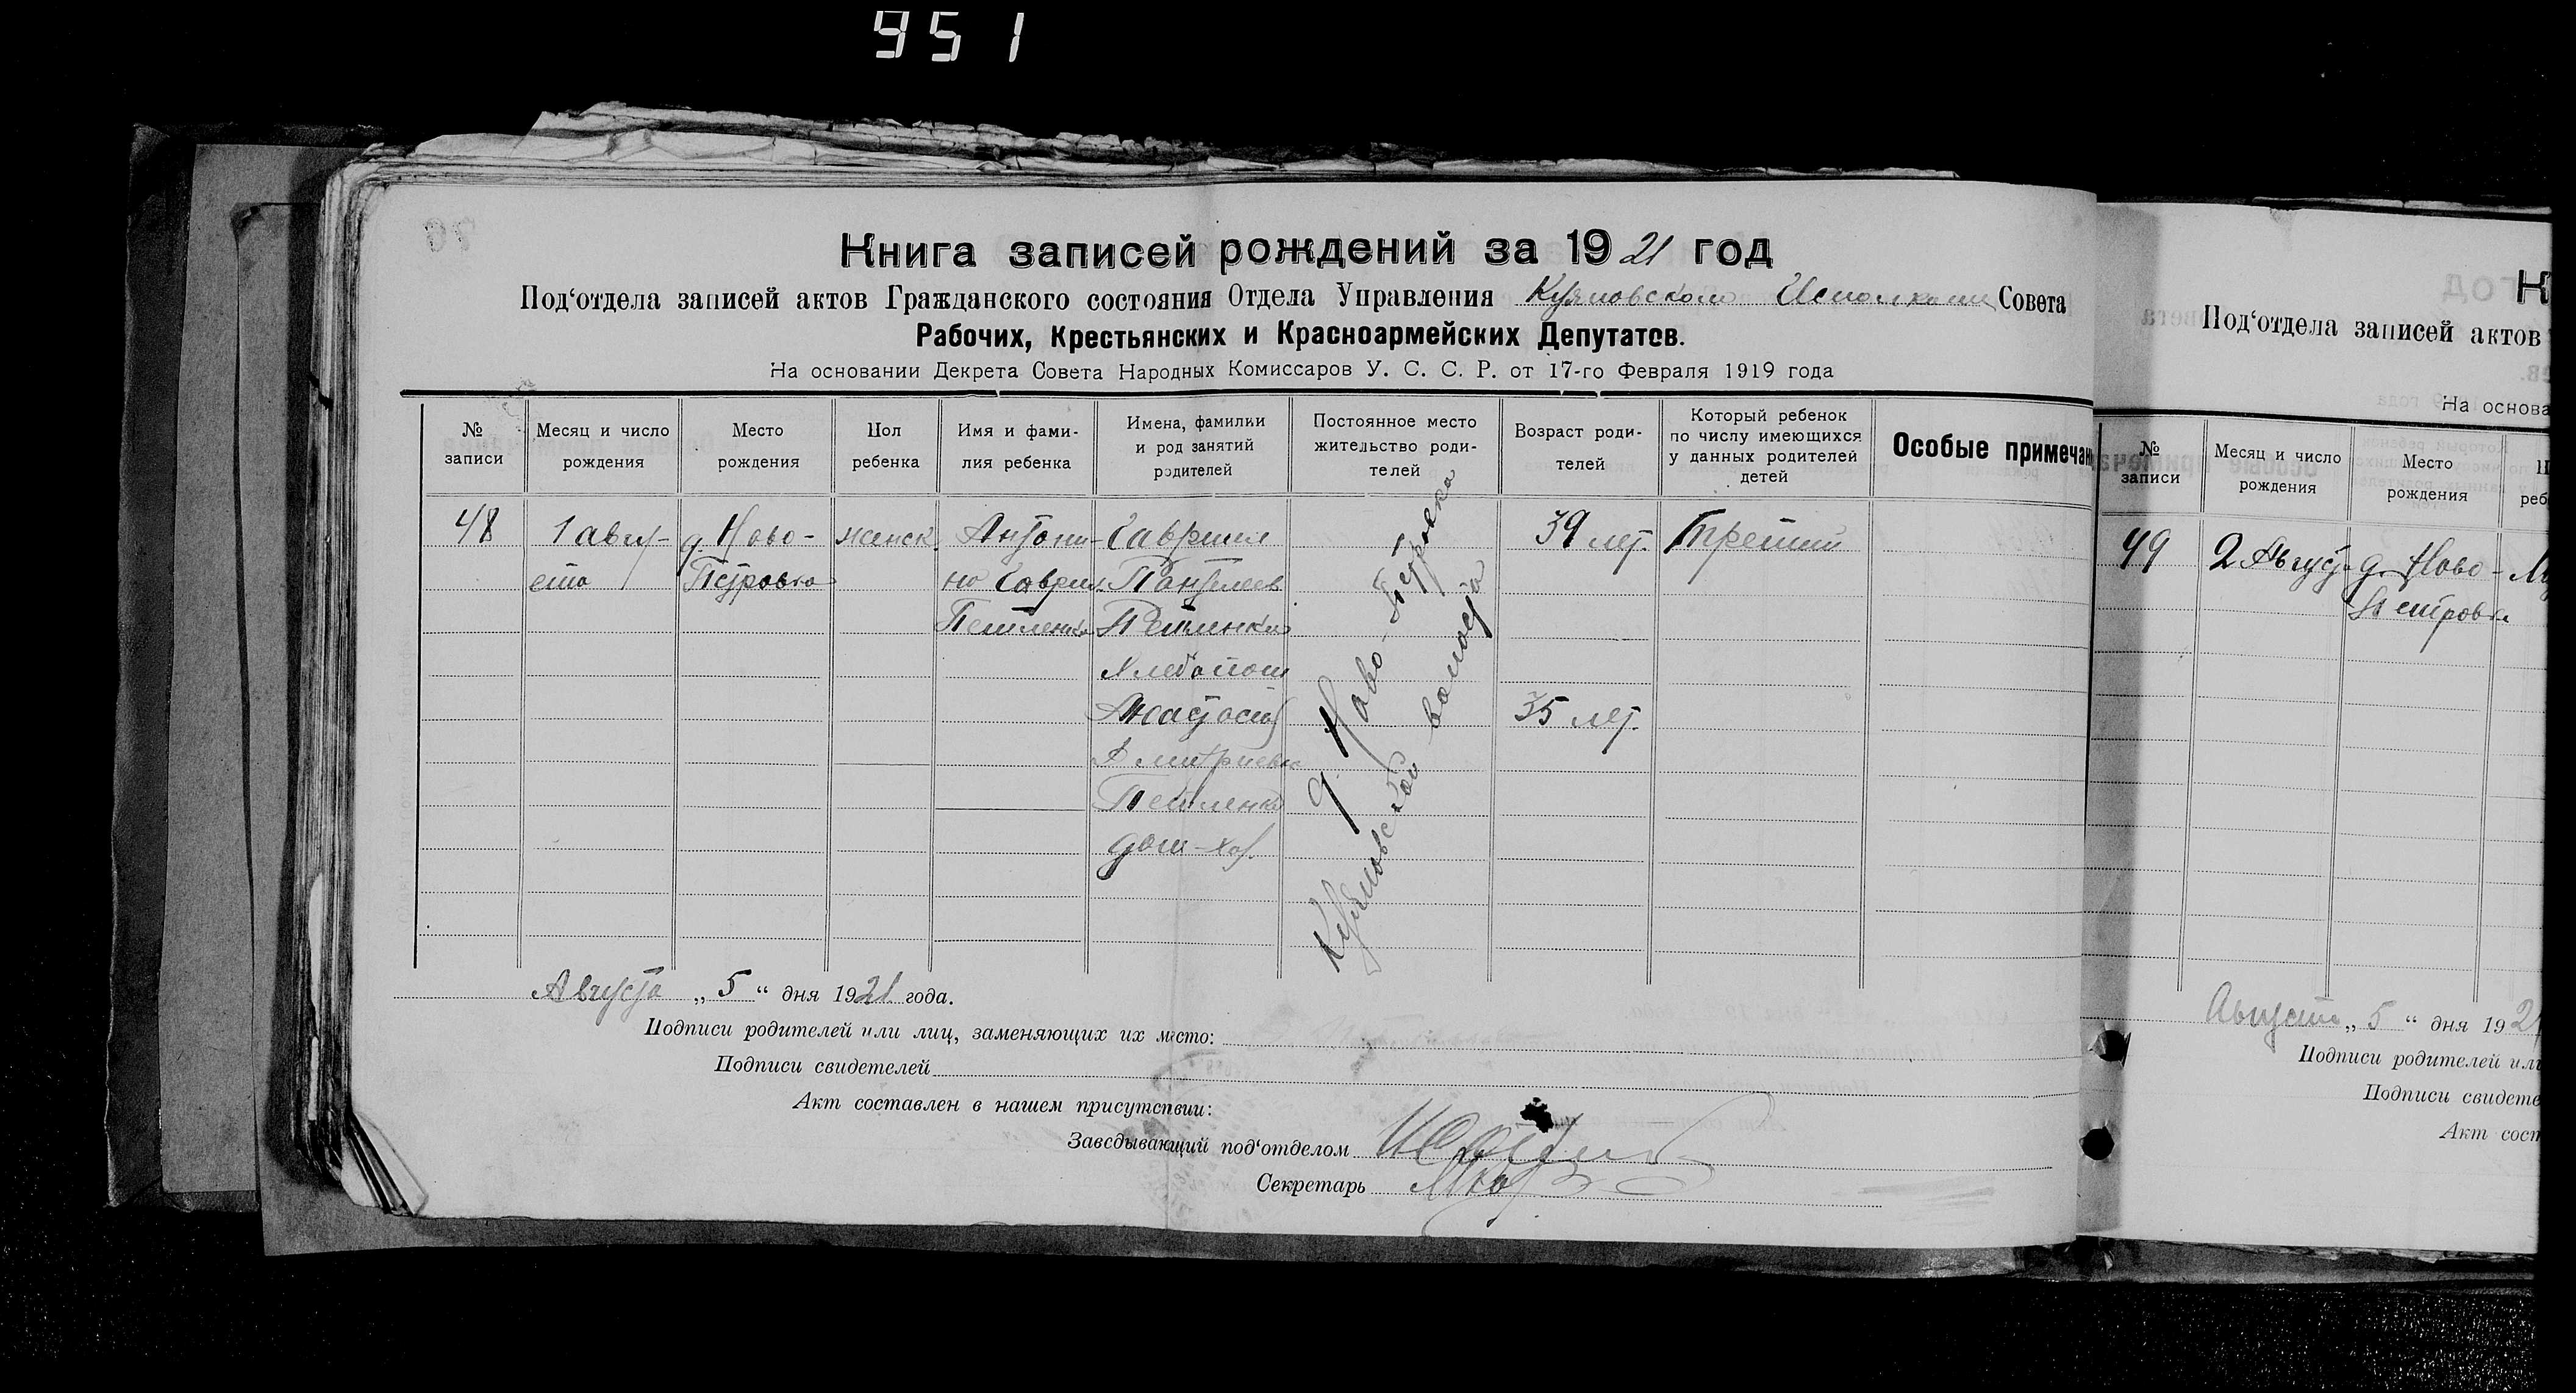 951
Книга записей рождений за 1921 год
Под‘отдела записей актов Гражданского состояния Отдела Управления Совета
Рабочих, Крестьянских и Красноармейских Депутатов.
На основании Декрета Совета Народных Комиссаров У. С. С. Р. от 17-го Февраля 1919 года
№ записи
Месяц и число рождения
Место рождения
Пол ребенка
Имя и фами-
лия ребенка
Имена, фамилии
и род занятий
родителей
Постоянное место
жительство роди-
телей
Возраст роди-
телей
Который ребенок
по числу имеющихся
у данных родителей
детей
Особые примечан
48
1 авгу-
ста
д. Ново-
Петровка
женск.
Антони-
на Гаврил.
Петленко
Гавриил
Пантелеев
Петленко
Хлебопаш
Анастасия
Дмитриевна
Петленко
дом-хоз.
д. Ново-Петровка
волость
39 лет.
35 лет.
Третий
Августа „ 5 “ дня 1921 года.
Подписи родителей или лиц, заменяющих их место:
Подписи свидетелей
Акт составлен в нашем присутствии:
Заведывающий под‘отделом
Секретарь
К
Под‘отдела записей актов
На основа
№ записи
Месяц и число рождения
Место рождения
49
2 Август
д. Ново-
Петровка
Августа „ 5 “ дня 192
Подписи родителей или
Подписи свидете
Акт сост